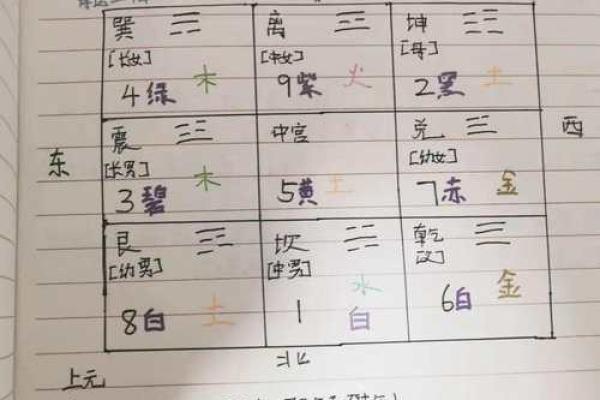 巽 ☴ 离 ☲ 坤 ☷
[长女] [中女] [母]
4绿 木 9紫 火 2黑 土
震 ☳ 中宫 兑 ☱
东 西
[长男] [幼女]
3碧 木 5黄 土 7赤 金
艮 ☶ 坎 ☵ 乾 ☰
[幼男] [中男] [父]
8白 土 1 水 白 6白 金
北
上元